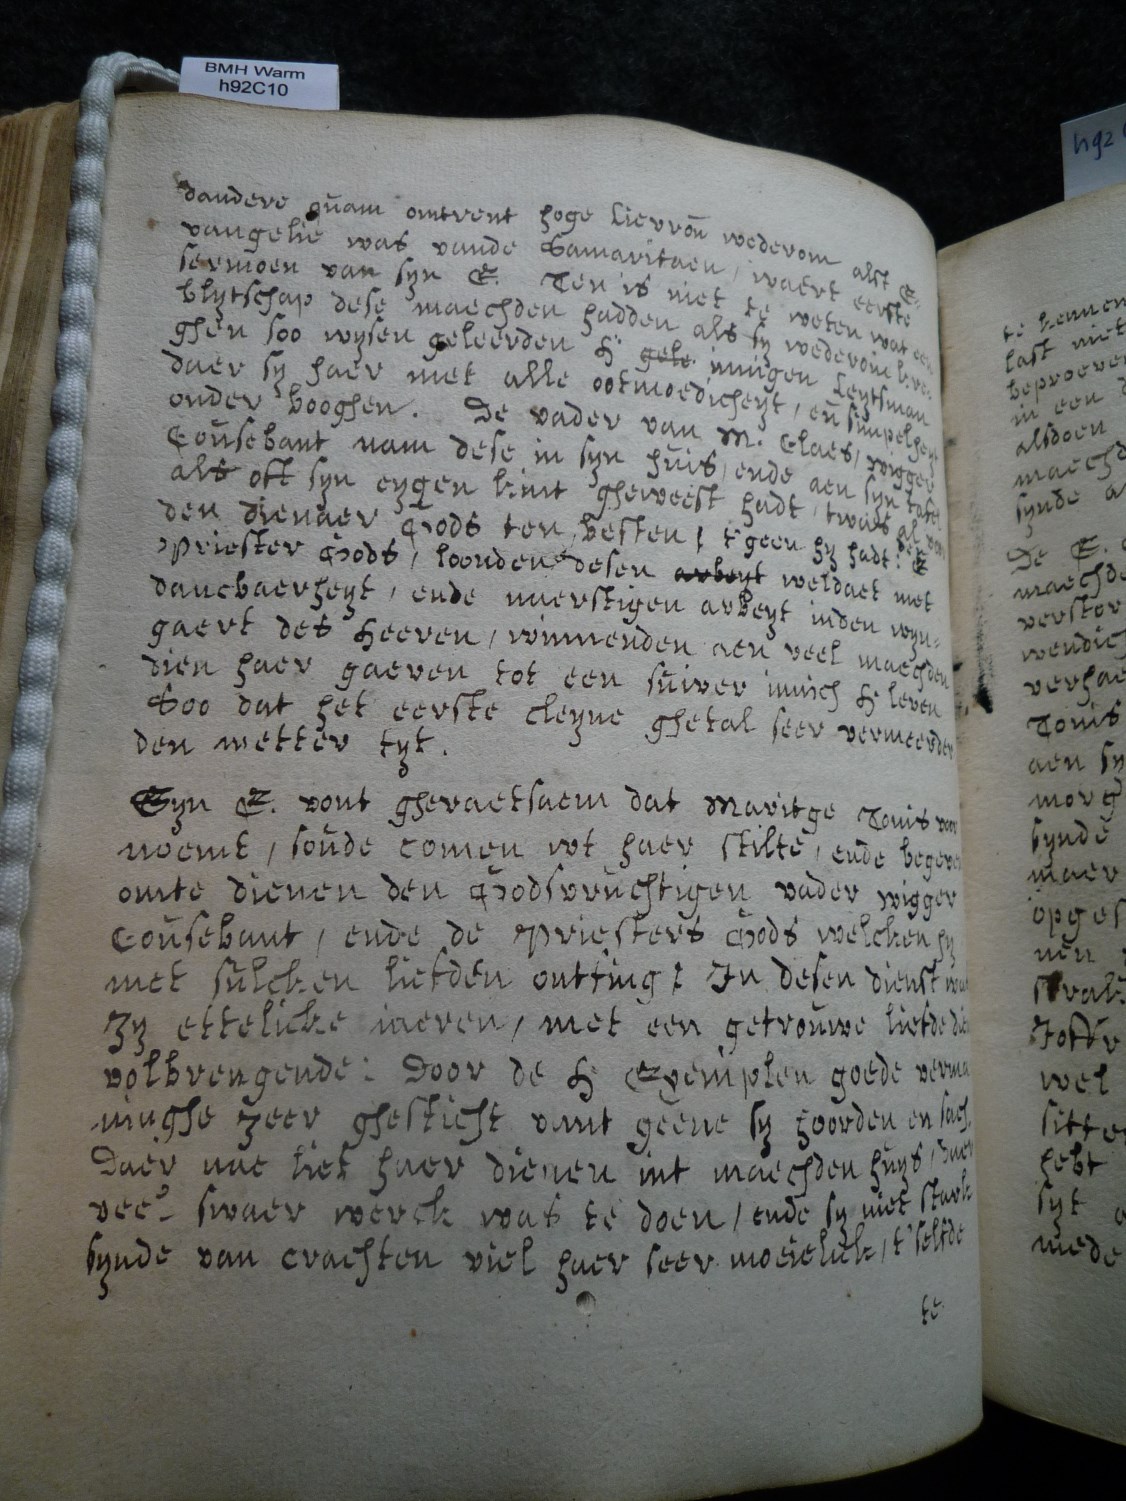 BMH Warm
h92C10
h92
dandere quam omtrent hoge Lievrou wederom alst E-
vangelie was vande Samaritaen, waert eerste
sermoen van syn E. Ten is niet te weten wat een
blytschap dese maechden hadden als sy wederom kre-
ghen soo wysen geleerden H innigen Leytsman
daer sy haer met alle ootmoedicheyt, en simpelheyt
onder booghen. De vader van M. Claes, Wigger
Cousebant nam dese in syn huis, ende aen syn tafel
als oft syn eygen kint gheweest hadt, twas al
den dienaer Gods ten besten, t'geen hy hadt. E
Priester Gods, loonden desen arbeyt weldaet met
dancbaerheyt, ende naerstigen arbeyt inden wyn-
gaert des Heeren, winnenden aen veel maechden
dien haer gaeven tot een suiver innich H leven
Soo dat het eerste cleyne ghetal seer vermeerder
den metter tyt.
Syn E. vont gheraetsaem dat Maritge Tonis
noemt, soude comen wt haer stilte, ende begeven
omte dienen den Godsvruchtigen vader wigger
Cousebant, ende de Priesters Gods welcken hy
met sulcken liefden ontfing: In desen dienst was
Zy ettelicke iaeren, met een getrouwe liefde
volbrengende: Door de H Exemplen goede verma
ninghe zeer ghesticht vant geene sy hoorden en sach.
Daer nae liet haer dienen int maechden huys, daer
veel swaer werck was te doen, ende sy niet starck
synde van crachten viel haer seer moeielick, t'selfde
te
te kennen
last niet
in een
alsdoen
maechd
synde
De E.
maechde
verstor
wendich
verhae
Tonis
aen sy
morg
synde
maer
opges
nen
wel
sitte
hebt
syt
mede